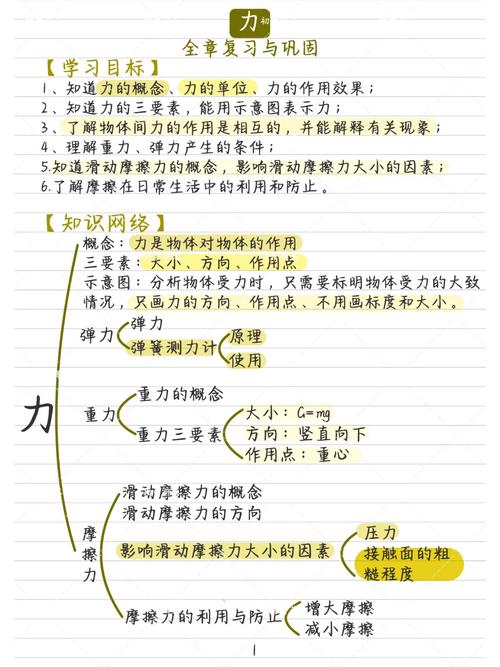 力 初
全章复习与巩固
【学习目标】
1、知道力的概念、力的单位、力的作用效果;
2、知道力的三要素,能用示意图表示力;
3、了解物体间力的作用是相互的,并能解释有关现象;
4、理解重力、弹力产生的条件;
5.知道滑动摩擦力的概念,影响滑动摩擦力大小的因素;
6.了解摩擦在日常生活中的利用和防止。
【知识网络】
力
概念:力是物体对物体的作用
三要素:大小、方向、作用点
示意图:分析物体受力时,只需要标明物体受力的大致
情况,只画力的方向、作用点、不用画标度和大小。
弹力
弹力
弹簧测力计
原理
使用
重力
重力的概念
重力三要素
大小:G=mg
方向:竖直向下
作用点:重心
摩
擦
力
滑动摩擦力的概念
滑动摩擦力的方向
影响滑动摩擦力大小的因素
压力
接触面的粗
糙程度
摩擦力的利用与防止
增大摩擦
减小摩擦
1